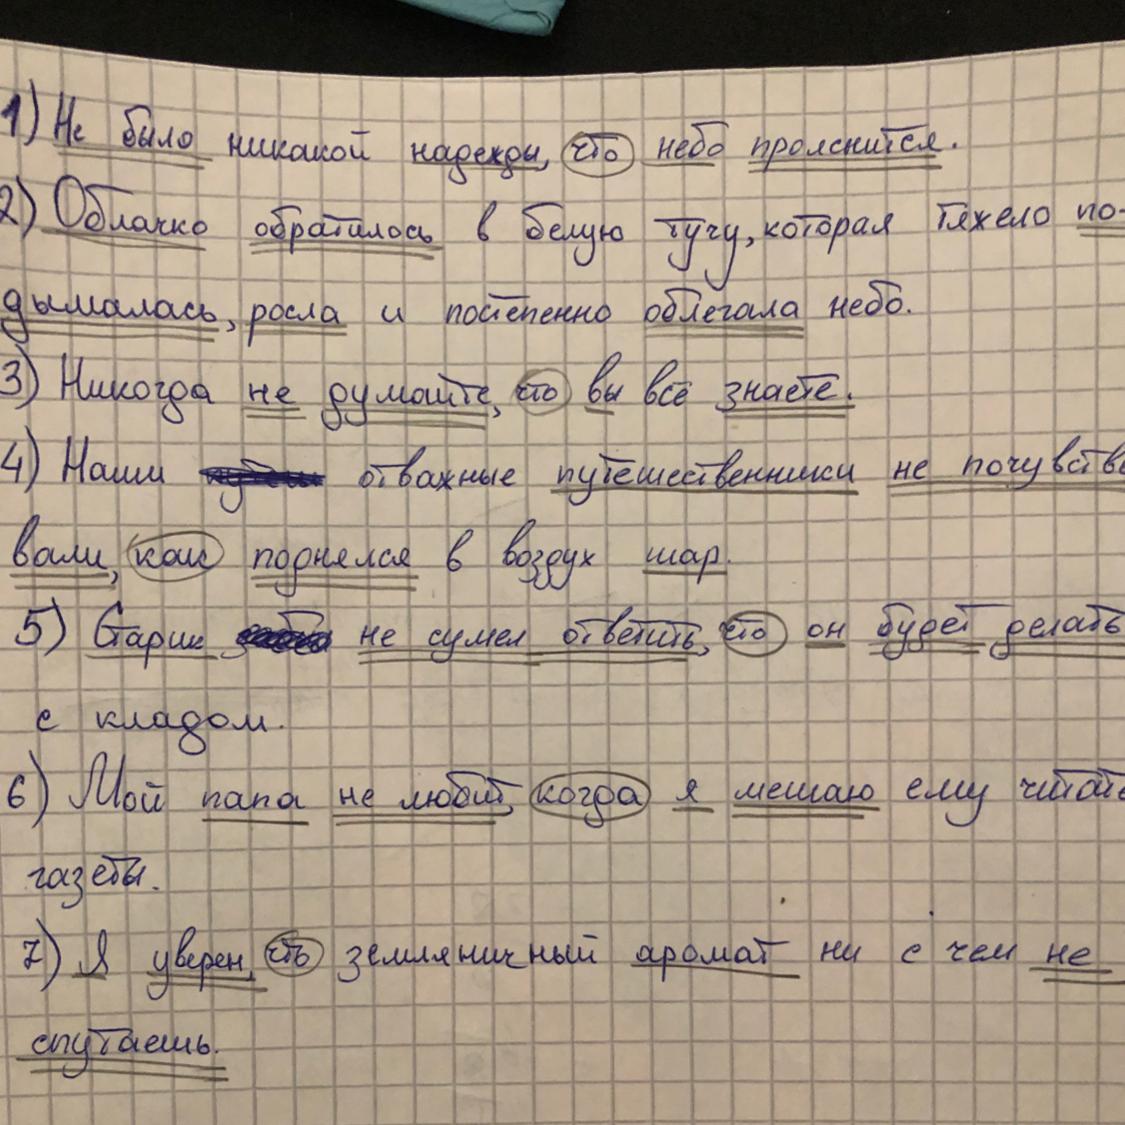 1) Не было никакой надежды, что небо прояснится.
2) Облачко обратилось в белую тучу, которая тяжело по-
дымалась, росла и постепенно облегала небо.
3) Никогда не думайте, что вы всё знаете.
4) Наши отважные путешественники не почувство
вали, как поднялся в воздух шар.
5) Старик не сумел ответить, что он будет делать
с кладом.
6) Мой папа не любит, когда я мешаю ему читать
газеты.
7) Я уверен, что земляничный аромат ни с чем не
спутаешь.